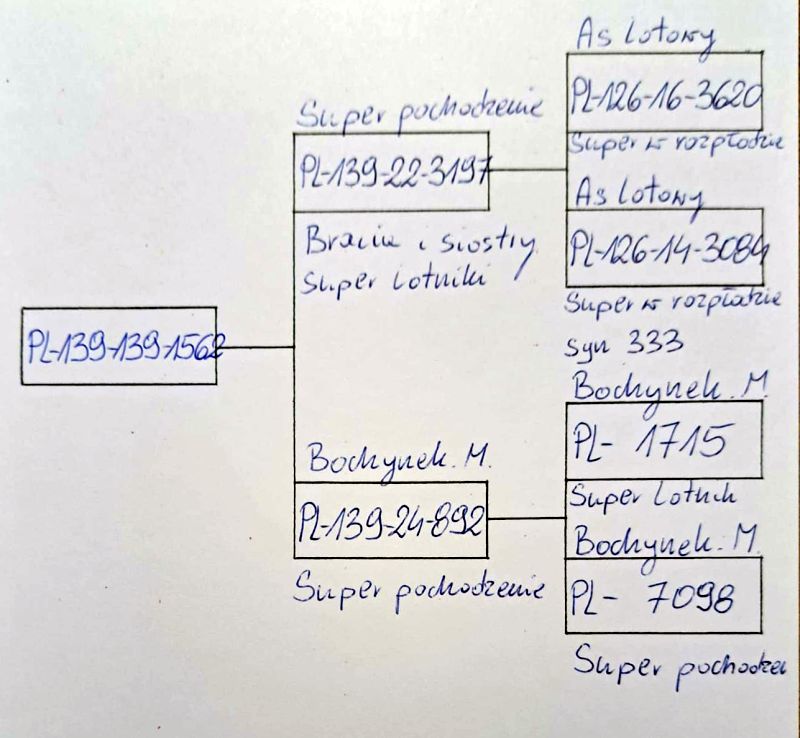 As lotowy
PL-126-16-3620
Super w rozpłodzie
Super pochodzenie
PL-139-22-3197
As lotowy
PL-126-14-3084
Bracia i siostry
Super lotniki
Super w rozpłodzie
PL-139-139-1562
syn 333
Bochynek. M.
PL- 1715
Bochynek. M.
PL-139-24-892
Super Lotnik
Bochynek. M.
PL- 7098
Super pochodzenie
Super pochodzen